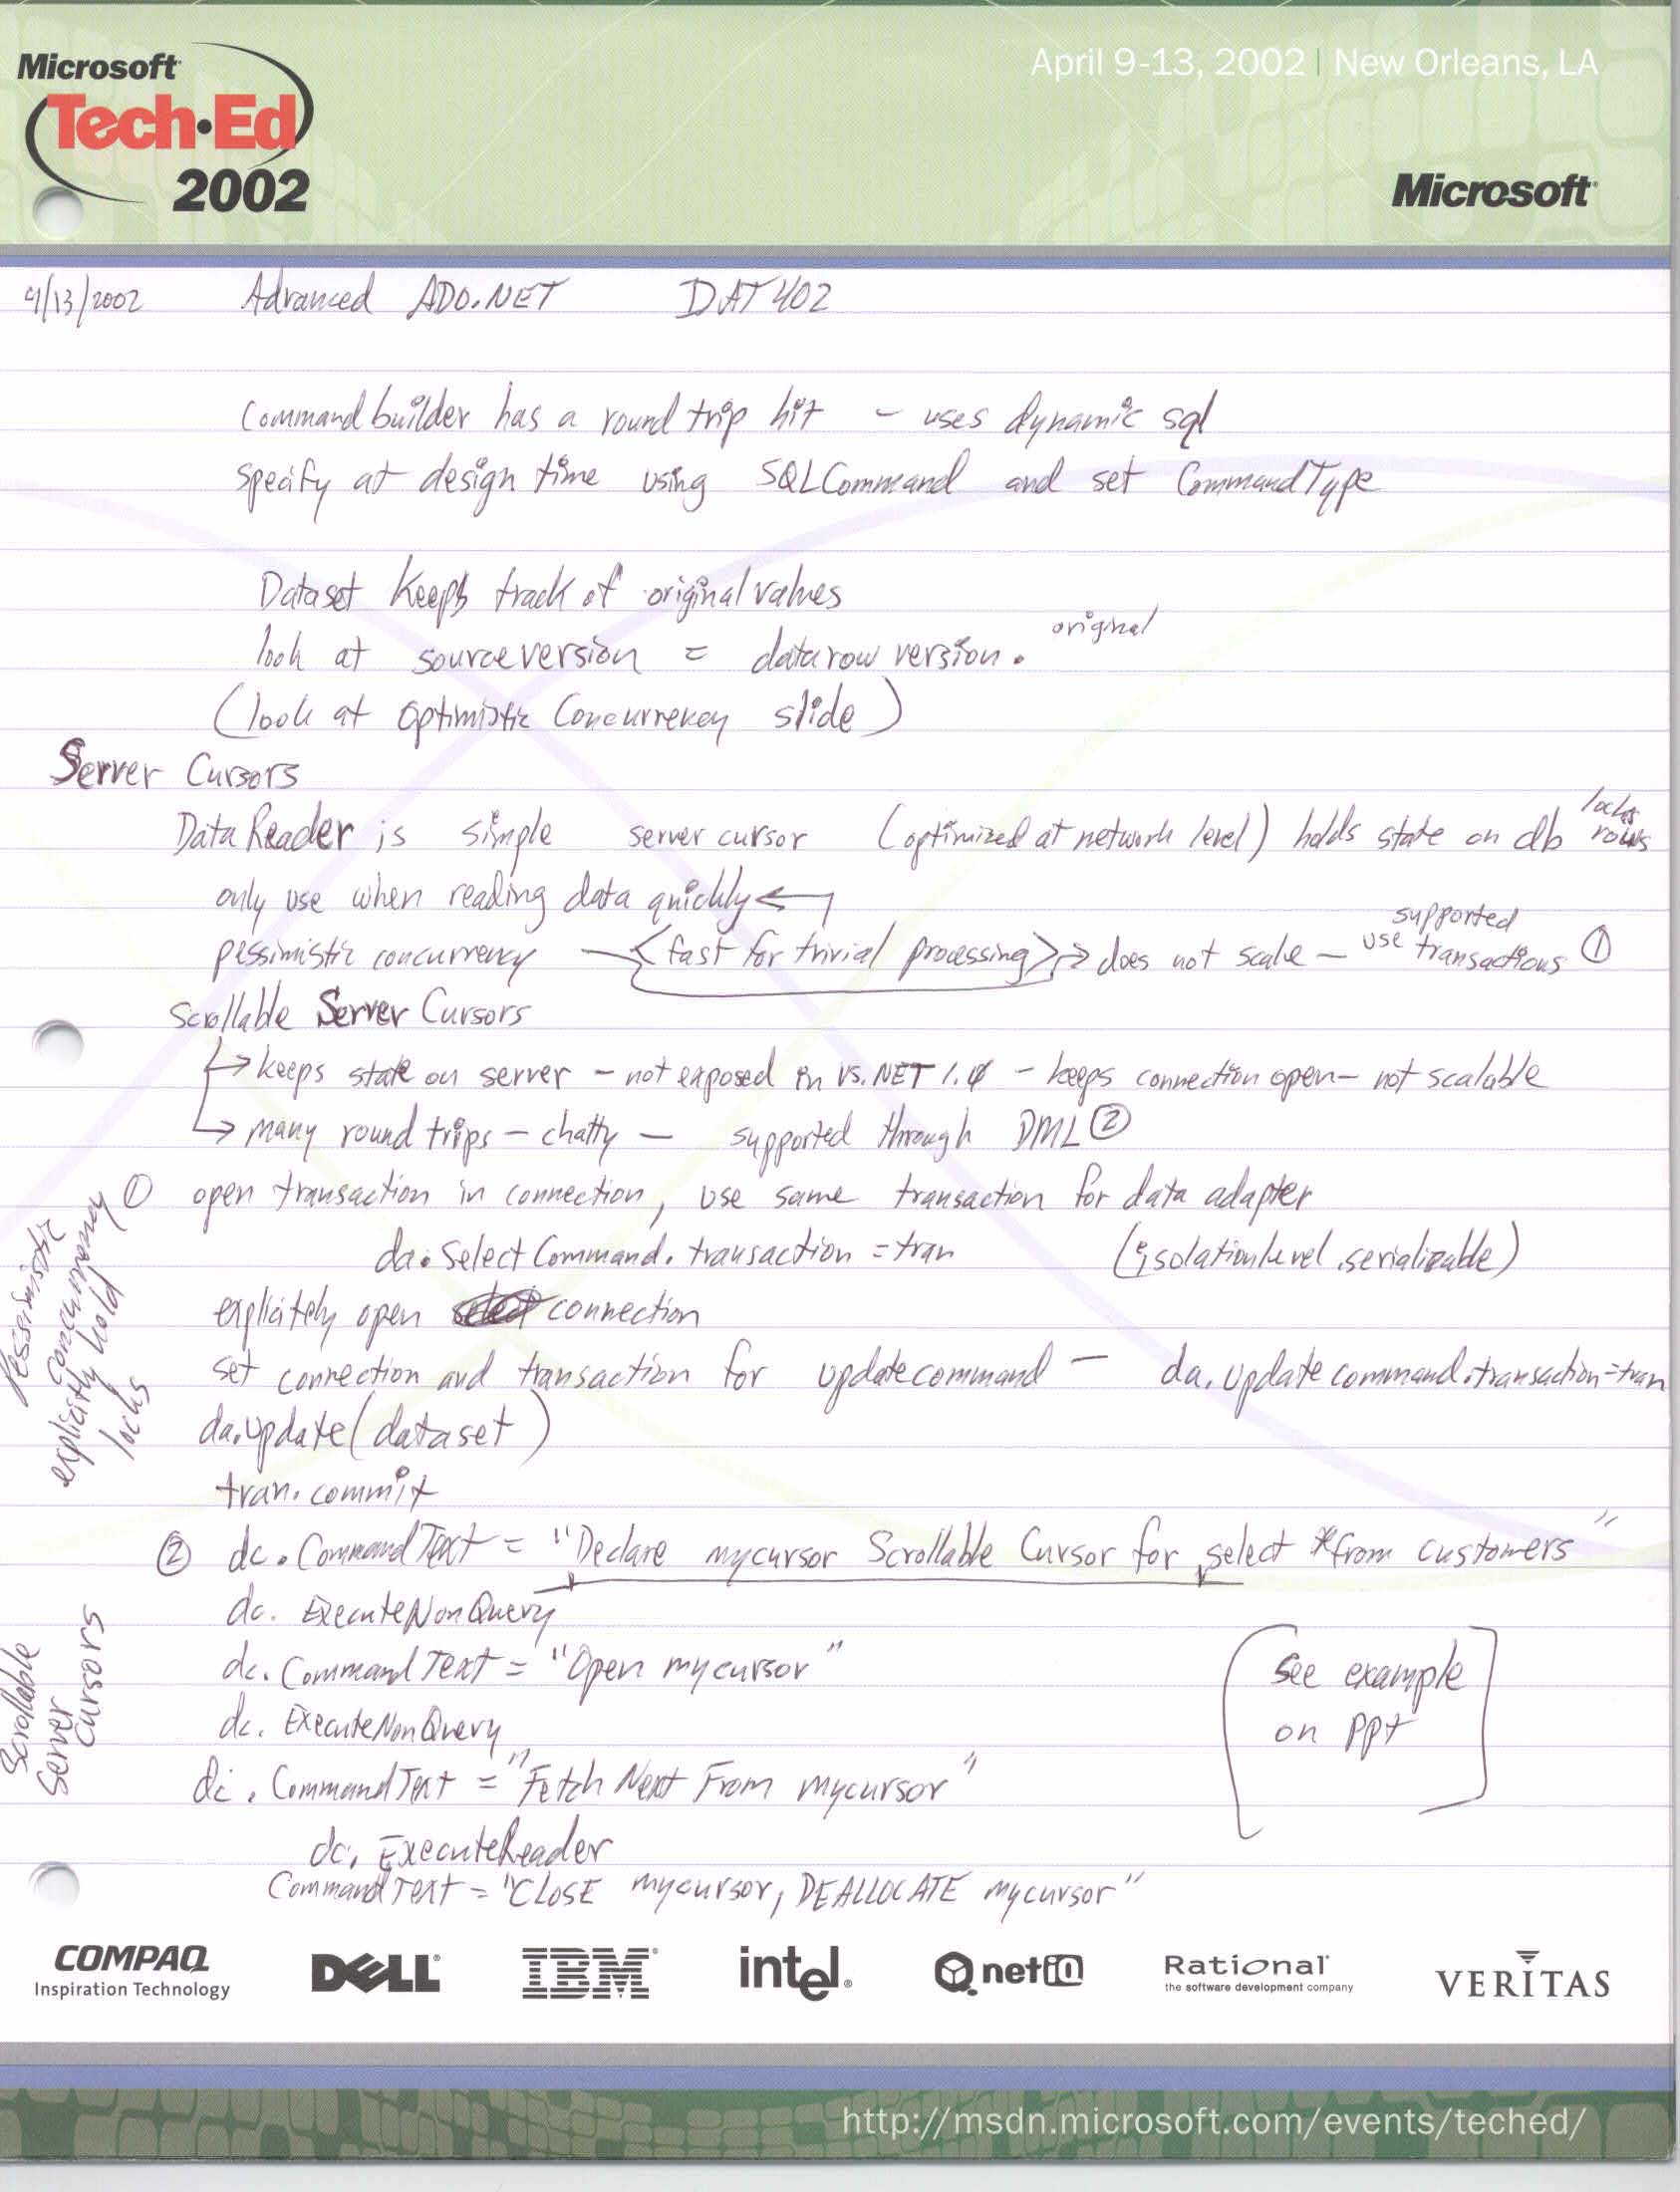 Microsoft
Tech·Ed
2002
April 9-13, 2002 | New Orleans, LA
Microsoft
4/13/2002 Advanced ADO.NET DAT402
Commandbuilder has a round trip hit – uses dynamic sql
specify at design time using SQLCommand and set CommandType
Dataset keeps track of original values
look at sourceversion = datarowversion. original
(look at optimistic concurrency slide)
Server Cursors
DataReader is simple server cursor (optimized at network level) holds state on db locks rows
only use when reading data quickly ←
pessimistic concurrency — <fast for trivial processing> → does not scale – use supported transactions ①
Scrollable Server Cursors
→ keeps state on server – not exposed in VS.NET 1.0 – keeps connection open – not scalable
→ many round trips – chatty – supported through DML ②
① open transaction in connection, use same transaction for data adapter
da.SelectCommand.transaction = tran (isolationlevel.serializable)
explicitely open connection
set connection and transaction for updatecommand – da.updatecommand.transaction=tran
da.update(dataset)
tran.commit
Pessimistic
concurrency
explicitly hold
locks
② dc.CommandText = "Declare mycursor Scrollable Cursor for select * from customers"
dc.ExecuteNonQuery
dc.CommandText = "Open mycursor"
dc.ExecuteNonQuery
dc.CommandText = "Fetch Next From mycursor"
dc.ExecuteReader
CommandText = "CLOSE mycursor, DEALLOCATE mycursor"
Scrollable
Server
Cursors
See example
on ppt
COMPAQ
Inspiration Technology
DELL
IBM
intel
netiQ
Rational
the software development company
VERITAS
http://msdn.microsoft.com/events/teched/